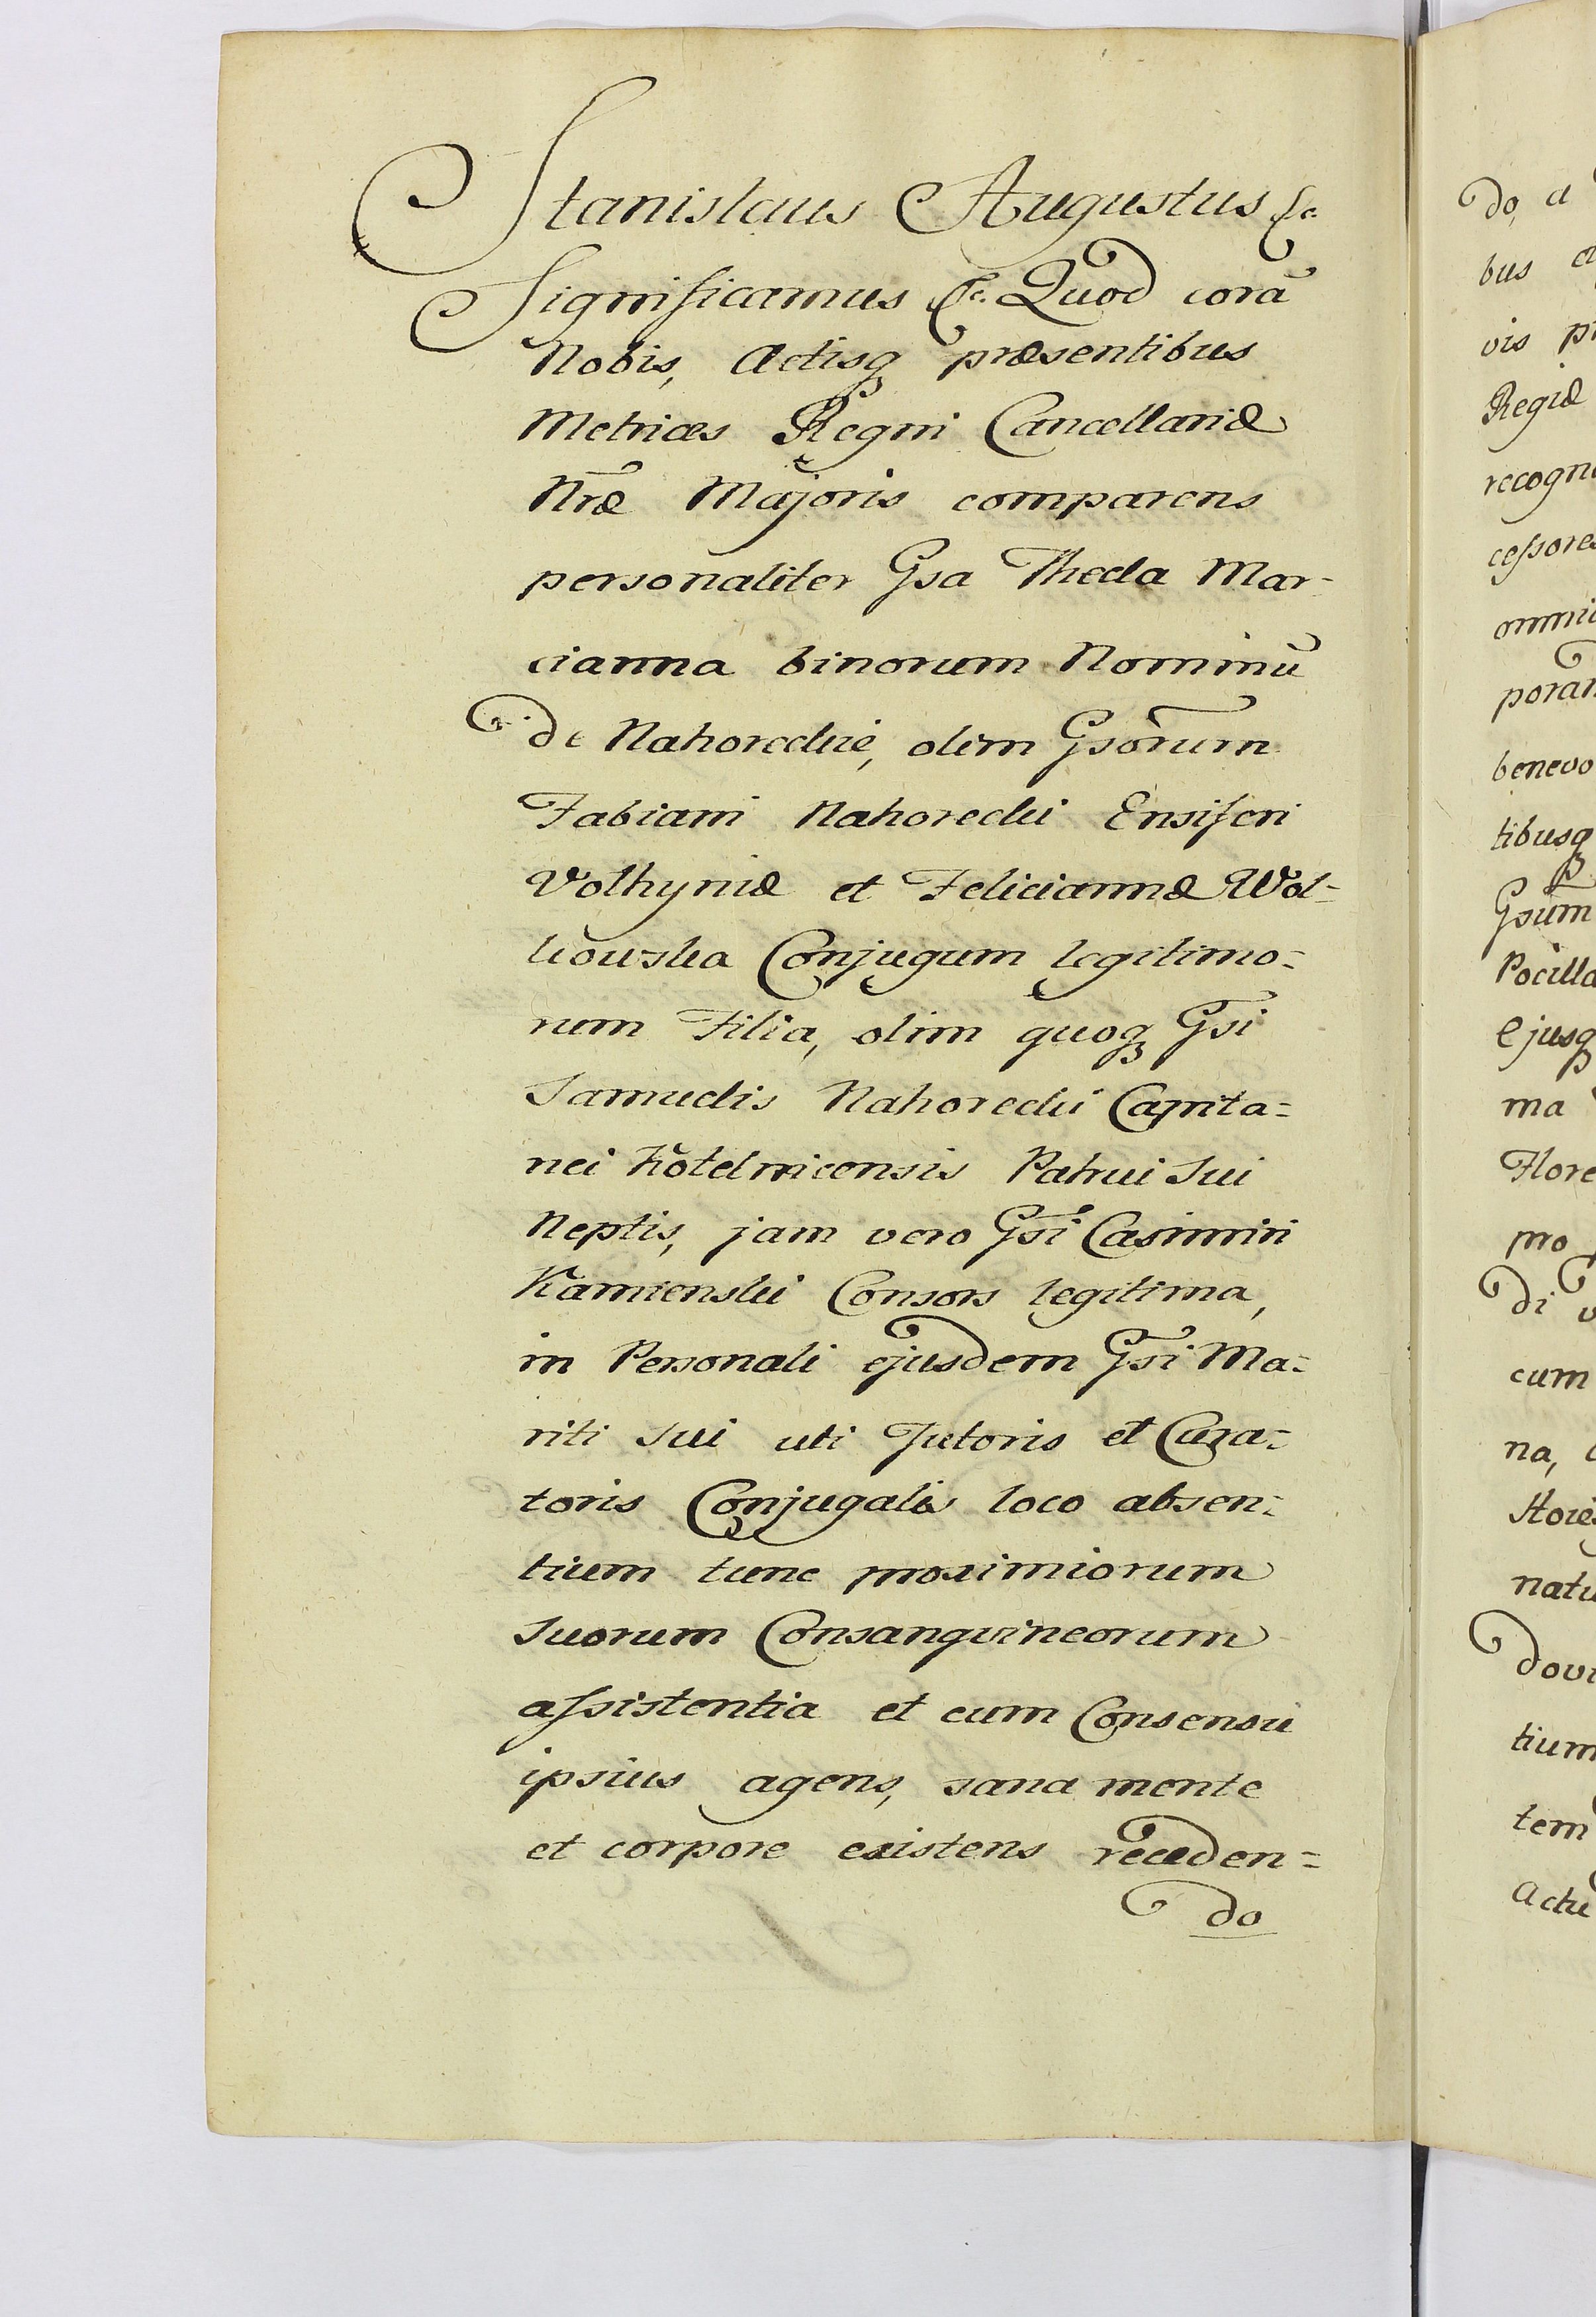 Stanislaus Augustus &c.
Significamus &c. Quod corã
Nobis, Actisq₃ præsentibus
Metrices Regni Cancellariæ
Nr̃æ Majoris comparens
personaliter Gsa Thecla Mar-
cianna binorum Nominũ
de Nahoreckie, olim Gsõrum
Fabiani Nahorecki Ensiferi
Volhyniæ et Feliciannæ Wol-
kowska Conjugum legitimo=
rum Filia, olim quoq₃ Gsi
Samuelis Nahorecki Capita=
nei Kotelnicensis Patrui Sui
Neptis, jam vero Gsi Casimiri
Kamienski Consors legitima,
in Personali ejusdem Gsi Ma=
riti sui uti Tutoris et Cura=
toris Conjugalis loco absen=
tium tunc proximiorum
Suorum Consanguineorum
assistentia et cum Consensu
ipsius agens, sana mente
et corpore existens receden=
do
do, a
bus
vis
Regiæ
recogn
cessores
omni
poran
benevo
tibusq₃
Gsum
Pocilla
Ejusq₃
ma
Flore
pro
di
cum
na,
natu
dovi
tium
tem
Actu